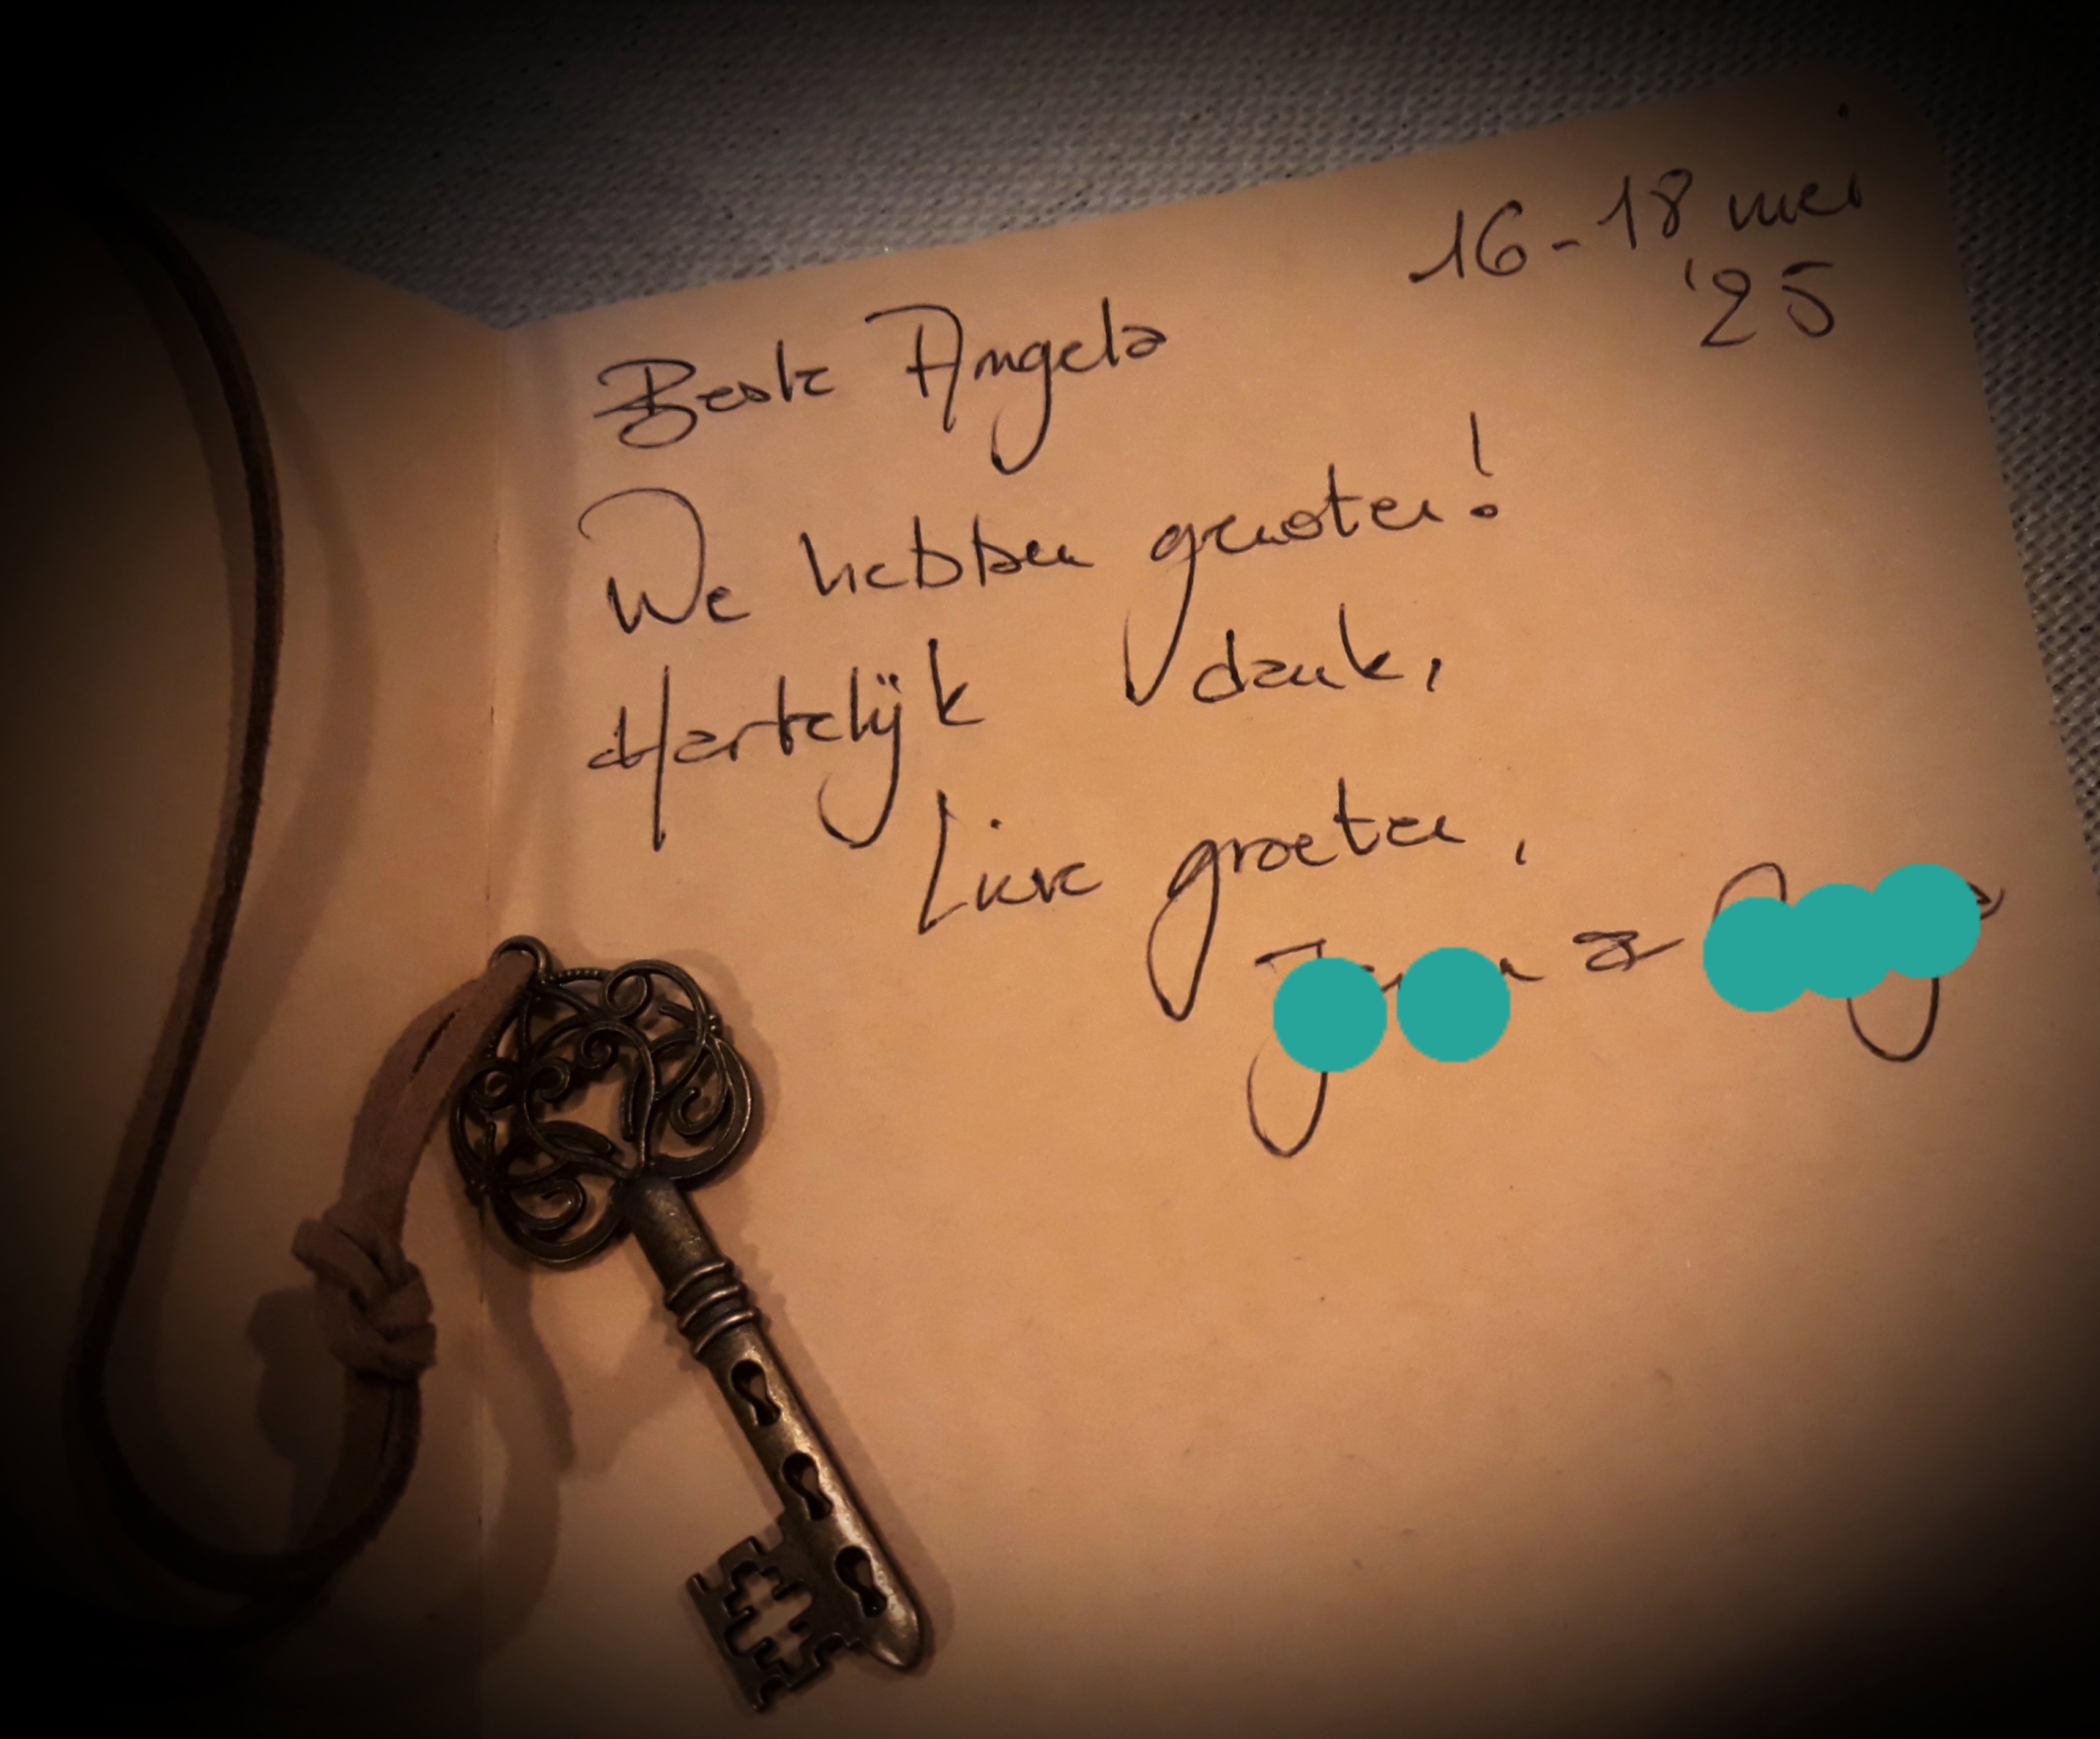 16-18 mei
'25
Beste Angela
We hebben genoten!
Hartelijk dank,
Lieve groeten,
&